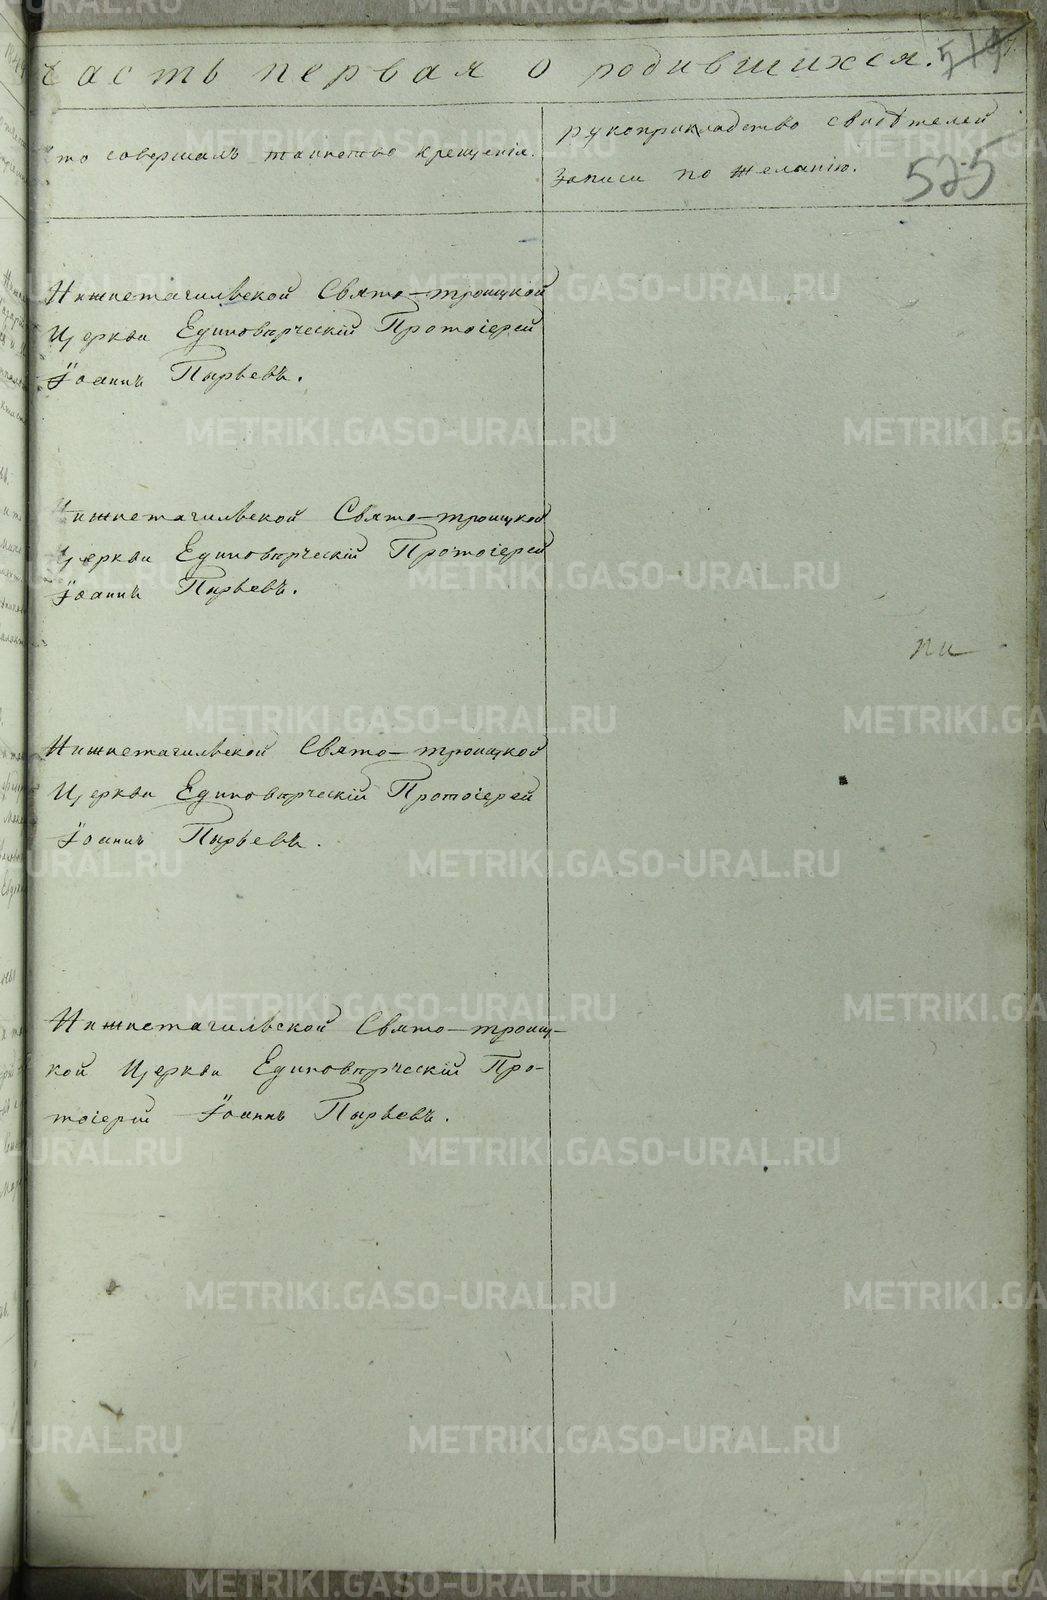 часть первая о родившихся. 519
Кто совершалъ таинство крещенія.
рукоприкладство свидѣтелей
записи по желанію.
525
Нижнетагильской Свято-троицкой
Церкви Единовѣрческій Протоіерей
Іоаннъ Пырьевъ.
Нижнетагильской Свято-троицкой
Церкви Единовѣрческій Протоіерей
Іоаннъ Пырьевъ.
Нижнетагильской Свято-троицкой
Церкви Единовѣрческій Протоіерей
Іоаннъ Пырьевъ.
Нижнетагильской Свято-троиц-
кой Церкви Единовѣрческій Про-
тоіерей Іоаннъ Пырьевъ.
METRIKI.GASO-URAL.RU